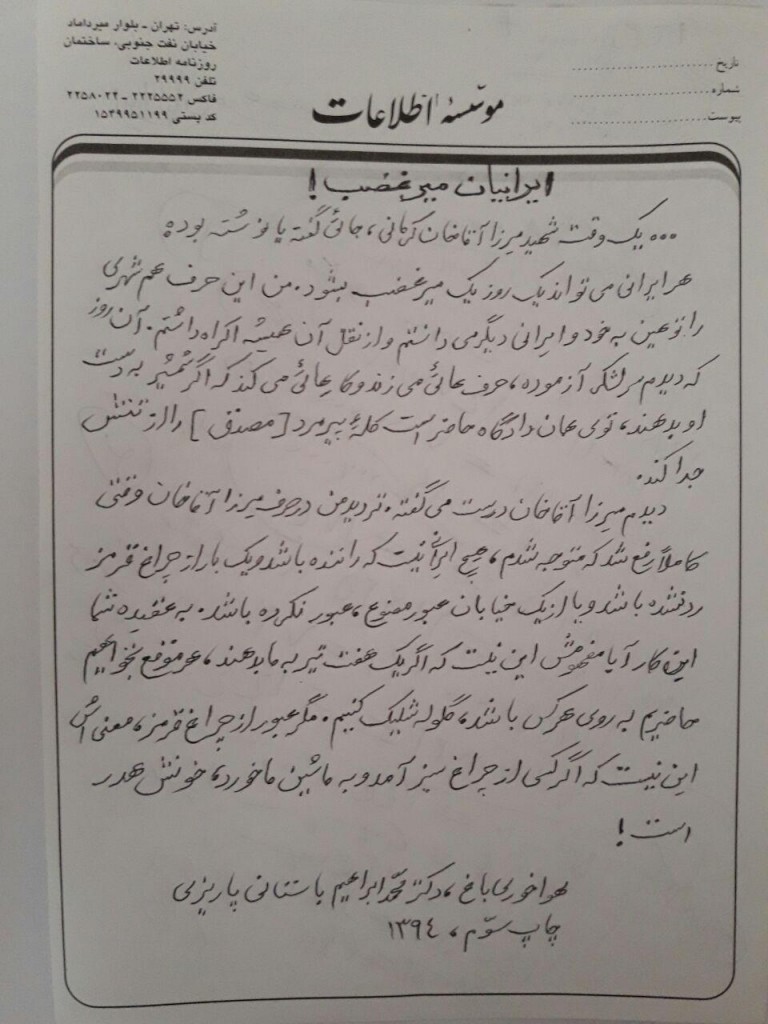 آدرس: تهران ـ بلوار میرداماد
خیابان نفت جنوبی، ساختمان
روزنامه اطلاعات
تلفن ۲۹۹۹۹
فاکس ۲۲۲۵۵۵۲ ـ ۲۲۵۸۰۲۲
کد پستی ۱۵۴۹۹۵۱۱۹۹
تاریخ
شماره
پیوست
مؤسّسهٔ اطلاعات
ایرانیان میرغضب!
... یک وقت شهید میرزا آقاخان کرمانی، جائی گفته یا نوشته بوده
هر ایرانی می تواند یک روز یک میرغضب بشود. من این حرف هم شهری
را توهین به خود و ایرانی دیگر می دانستم و از نقل آن همیشه اکراه داشتم. آن روز
که دیدم سرلشکر آزموده، حرف هائی می زند و کارهائی می کند که اگر شمشیر به دست
او بدهند، توی همان دادگاه حاضر است کلهٔ پیرمرد [مصدق] را از تنش
جدا کند.
دیدم میرزا آقاخان درست می گفته. تردید من در حرف میرزا آقاخان وقتی
کاملاً رفع شد که متوجه شدم، هیچ ایرانی نیست که راننده باشد و یک بار از چراغ قرمز
رد نشده باشد و یا از یک خیابان عبور ممنوع، عبور نکرده باشد. به عقیده شما
این کار آیا مفهومش این نیست که اگر یک هفت تیر به ما بدهند، هر موقع بخواهیم
حاضریم به روی هر کس باشد، گلوله شلیک کنیم. مگر عبور از چراغ قرمز، معنی اش
این نیست که اگر کسی از چراغ سبز آمد و به ماشین ما خورد، خونش هدر
است!
هواخوری باغ، دکتر محمّد ابراهیم باستانی پاریزی
چاپ سوّم، ۱۳۹٤